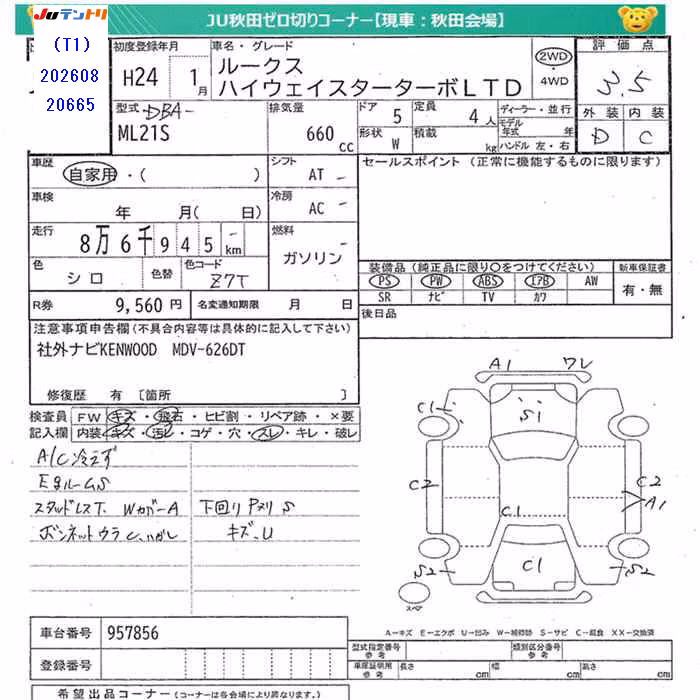 JUテントリ
JU秋田ゼロ切りコーナー【現車：秋田会場】
(T1)
202608
20665
初度登録年月
H24 1月
車名・グレード
ルークス
ハイウェイスターターボLTD
2WD
4WD
評価点
3.5
外装 内装
D C
型式 DBA-
ML21S
排気量
660 cc
ドア 5
形状 W
定員 4人
積載 kg
ディーラー・並行
モデル年式 年
ハンドル 左・右
車歴
自家用・( )
シフト
AT -
セールスポイント (正常に機能するものに限ります)
車検
年 月( 日)
冷房
AC -
走行
8万6千945 km
燃料
ガソリン
色
シロ
色替
色コード
Z7T
装備品 (純正品に限り○をつけてください)
PS PW ABS エアB AW
SR ナビ TV カワ
新車保証書
有・無
R券 9,560円
名変通知期限 月 日
後日品
注意事項申告欄(不具合内容等は具体的に記入して下さい)
社外ナビKENWOOD MDV-626DT
修復歴 有 [箇所 ]
検査員
記入欄
FW キズ・飛石・ヒビ割・リペア跡・×要
内装 キズ・汚レ・コゲ・穴・スレ・キレ・破レ
A/C冷えず
EgルームS
スタッドレスT. WカバーA
ボンネットウラC.ハガレ
下回りPメリS
キズ-U
A1 ワレ
C1
S1
C2
C2
A1
C1
C1
S2
S2
スペア
A-キズ E-エクボ U-凹み W-補修跡 S-サビ C-腐食 XX-交換済
車台番号 957856
登録番号
型式指定番号
参考
類別区分番号
参考
車庫証明用
参考
長さ cm
幅 cm
高さ cm
希望出品コーナー (コーナーは各会場により異なります。)